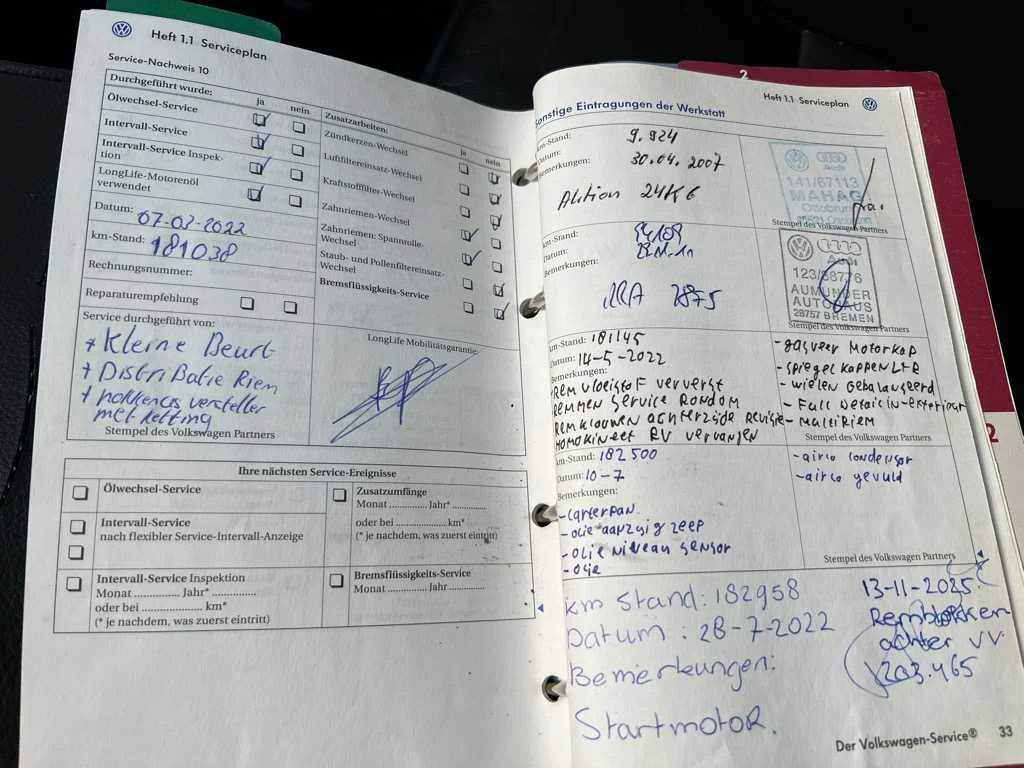 Heft 1.1 Serviceplan
Service-Nachweis 10
Durchgeführt wurde:
ja nein
Ölwechsel-Service
Intervall-Service
Intervall-Service Inspek-
tion
LongLife-Motorenöl
verwendet
Datum: 07-03-2022
km-Stand: 181038
Rechnungsnummer:
Reparaturempfehlung
Zusatzarbeiten:
ja nein
Zündkerzen-Wechsel
Luftfiltereinsatz-Wechsel
Kraftstofffilter-Wechsel
Zahnriemen-Wechsel
Zahnriemen: Spannrolle-
Wechsel
Staub- und Pollenfiltereinsatz-
Wechsel
Bremsflüssigkeits-Service
Service durchgeführt von:
+ Kleine Beurt
+ Distributie Riem
+ nokkenas versteller
met ketting
Stempel des Volkswagen Partners
LongLife Mobilitätsgarantie:
Ihre nächsten Service-Ereignisse
Ölwechsel-Service
Intervall-Service
nach flexibler Service-Intervall-Anzeige
Intervall-Service Inspektion
Monat .............. Jahr* ..............
oder bei .................... km*
(* je nachdem, was zuerst eintritt)
Zusatzumfänge
Monat .............. Jahr* ..............
oder bei .................... km*
(* je nachdem, was zuerst eintritt)
Bremsflüssigkeits-Service
Monat .............. Jahr ..............
Heft 1.1 Serviceplan
Sonstige Eintragungen der Werkstatt
km-Stand: 9.924
Datum: 30.04.2007
Bemerkungen:
Aktion 24K6
141/67113
MAHAG
Stempel des Volkswagen Partners
km-Stand:
Datum:
Bemerkungen:
2875
Audi
123/38776
AUMUNDER
AUTOHAUS
28757 BREMEN
Stempel des Volkswagen Partners
km-Stand: 181145
Datum: 14-5-2022
Bemerkungen:
Remvloeistof ververst
Remmen service rondom
Remklauwen achterzijde revisie
Homokineet RV vervangen
- gasveer Motorkap
- spiegelkappen L+R
- wielen gebalanseerd
- Full Detail in-exterieur
- Multiriem
Stempel des Volkswagen Partners
km-Stand: 182500
Datum: 10-7
Bemerkungen:
- carterpan
- olie aanzuig zeef
- olie niveau sensor
- olie
- airco condensor
- airco gevuld
Stempel des Volkswagen Partners
km stand: 182958
Datum: 28-7-2022
Bemerkungen:
Startmotor.
13-11-2025
Remblokken
achter VV
203.465
Der Volkswagen-Service®
33
2
2